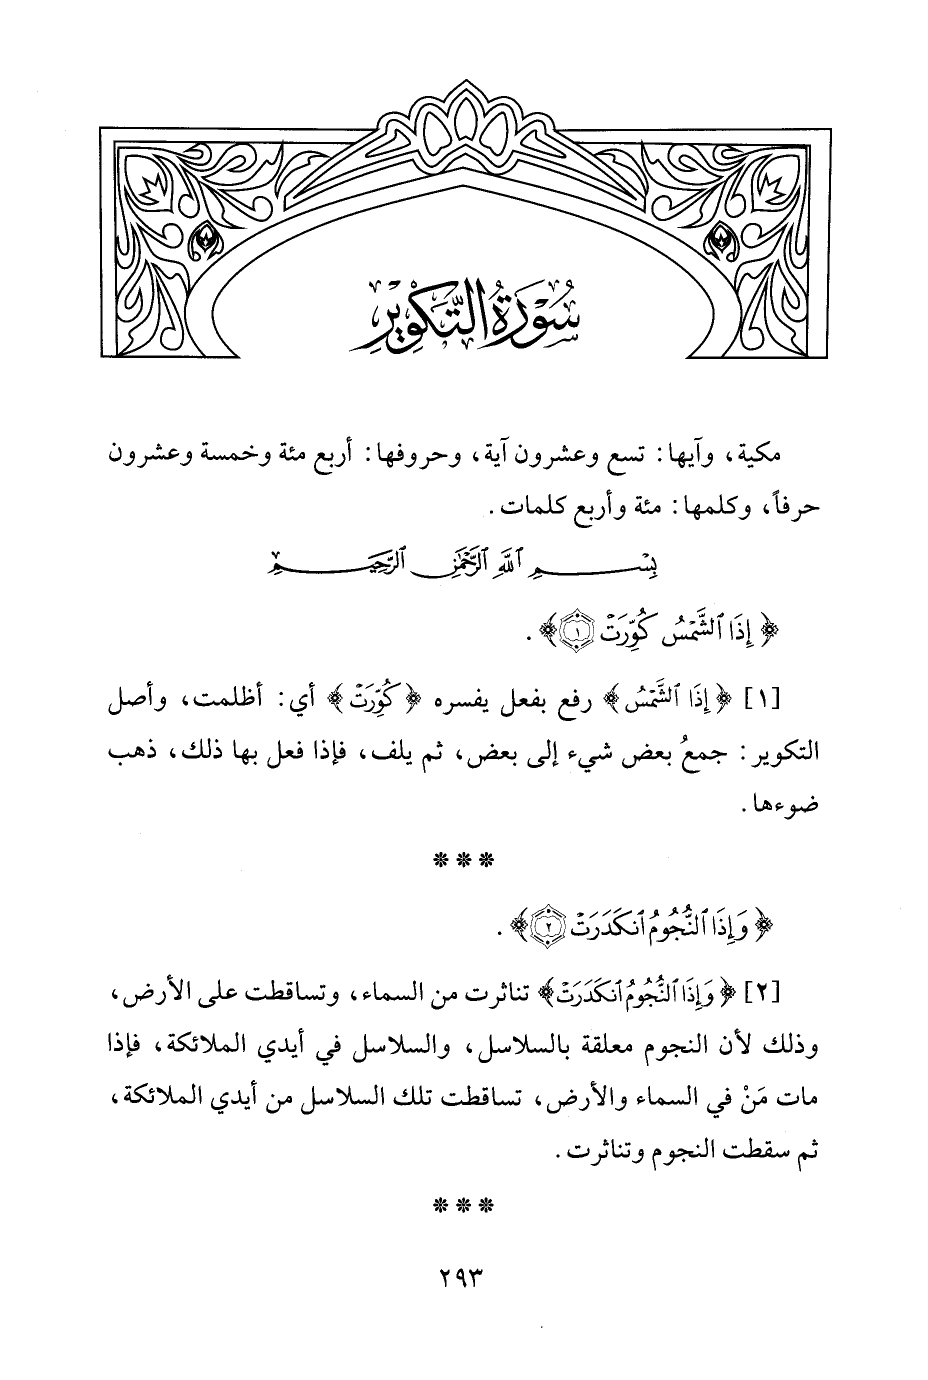 سُورَةُ التَّكْوِيرِ
مكية، وآيها: تسع وعشرون آية، وحروفها: أربع مئة وخمسة وعشرون
حرفاً، وكلمها: مئة وأربع كلمات.
بِسْمِ ٱللَّهِ ٱلرَّحْمَٰنِ ٱلرَّحِيمِ
﴿إِذَا ٱلشَّمْسُ كُوِّرَتْ ١﴾.
[١] ﴿إِذَا ٱلشَّمْسُ﴾ رفع بفعل يفسره ﴿كُوِّرَتْ﴾ أي: أظلمت، وأصل
التكوير: جمعُ بعض شيء إلى بعض، ثم يلف، فإذا فعل بها ذلك، ذهب
ضوءها.
***
﴿وَإِذَا ٱلنُّجُومُ ٱنكَدَرَتْ ٢﴾.
[٢] ﴿وَإِذَا ٱلنُّجُومُ ٱنكَدَرَتْ﴾ تناثرت من السماء، وتساقطت على الأرض،
وذلك لأن النجوم معلقة بالسلاسل، والسلاسل في أيدي الملائكة، فإذا
مات مَنْ في السماء والأرض، تساقطت تلك السلاسل من أيدي الملائكة،
ثم سقطت النجوم وتناثرت.
***
٢٩٣